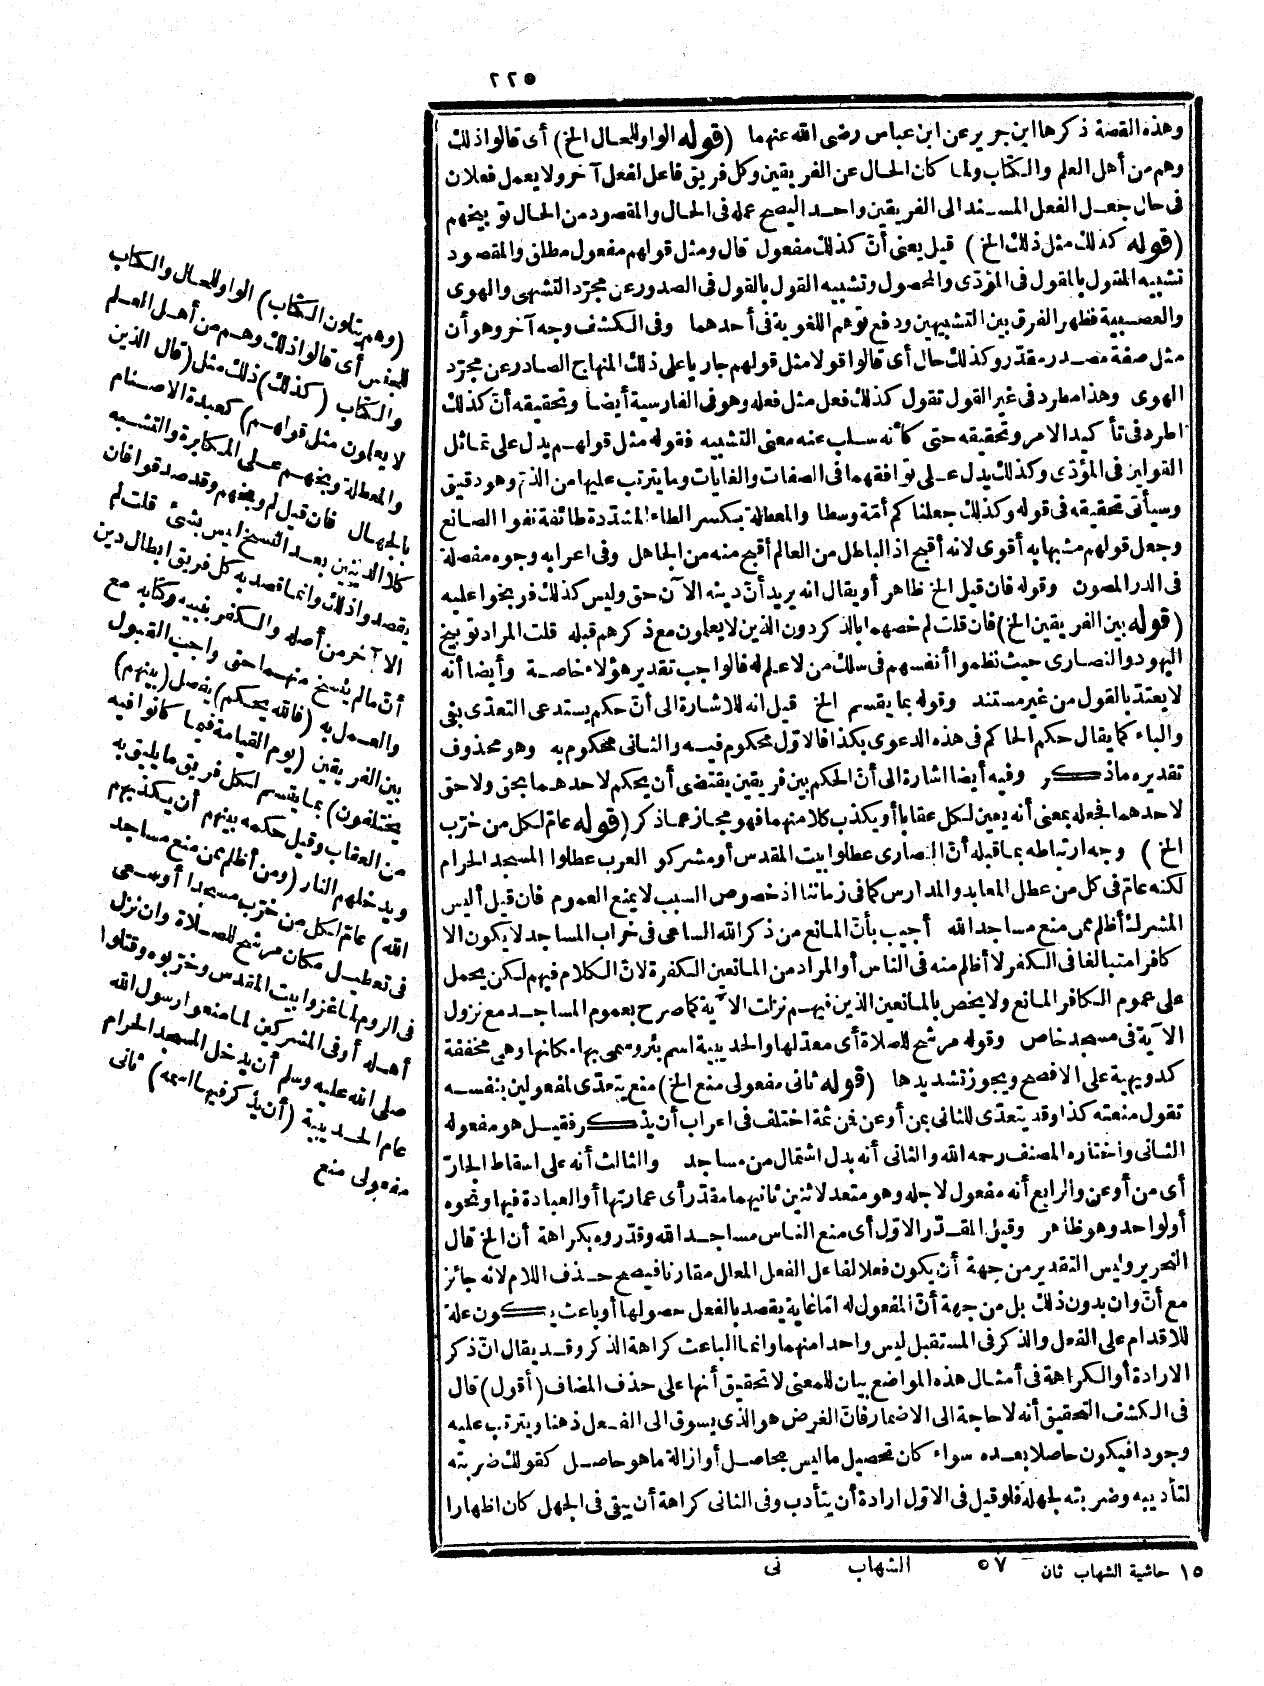 ٢٢٥
وهذه القصة ذكرها ابن جرير عن ابن عباس رضى الله عنهما (قوله الواو للحال الخ) أى قالوا ذلك
وهم من أهل العلم والكتاب ولما كان الحال عن الفريقين وكل فريق فاعل لفعل آخر ولا يعمل فعلان
فى حال جعل الفعل المسند الى الفريقين واحدا ليصح عمله فى الحال والمقصود من الحال توبيخهم
(قوله كذلك مثل ذلك الخ) قيل يعنى أنّ كذلك مفعول قال ومثل قولهم مفعول مطلق والمقصود
تشبيه المقول بالمقول فى المؤدّى والمحصول وتشبيه القول بالقول فى الصدور عن مجرّد التشهى والهوى
والعصبية فظهر الفرق بين التشبيهين ودفع توهم اللغوية فى أحدهما وفى الكشف وجه آخر وهو أن
مثل صفة مصدر مقدّر وكذلك حال أى قالوا قولا مثل قولهم جاريا على ذلك المنهاج الصادر عن مجرّد
الهوى وهذا مطرد فى غير القول تقول كذلك فعل مثل فعله وهو فى الفارسية أيضا وتحقيقه أنّ كذلك
اطرد فى تأكيد الامر وتحقيقه حتى كأنه سلب عنه معنى التشبيه فقوله مثل قولهم يدل على تماثل
القولين فى المؤدّى وكذلك يدل على توافقهما فى الصفات والغايات وما يترتب عليها من الذمّ وهو دقيق
وسيأتى تحقيقه فى قوله وكذلك جعلناكم أمّة وسطا والمعطلة بكسر الطاء المشدّدة طائفة نفوا الصانع
وجعل قولهم مشبها به أقوى لانه أقبح اذ الباطل من العالم أقبح منه من الجاهل وفى اعرابه وجوه مفصلة
فى الدر المصون وقوله فان قيل الخ ظاهر أو يقال انه يريد أنّ دينه الآن حق وليس كذلك فوبخوا عليه
(قوله بين الفريقين الخ) فان قلت لم خصهما بالذكر دون الذين لا يعلمون مع ذكرهم قبله قلت المراد توبيخ
اليهود والنصارى حيث نظموا أنفسهم فى سلك من لا علم له فالواجب تقدير هؤلاء خاصة وأيضا أنه
لا يعتدّ بالقول من غير مستند وقوله بما يقسم الخ قيل انه للاشارة الى أنّ حكم يستدعى التعدّى بفى
والباء كما يقال حكم الحاكم فى هذه الدعوى بكذا فالاوّل محكوم فيه والثانى محكوم به وهو محذوف
تقديره ما ذكر وفيه أيضا اشارة الى أنّ الحكم بين فريقين يقتضى أن يحكم لاحدهما بحق ولا حق
لاحدهما فجعله بمعنى أنه يعين لكل عقابا أو يكذب كلا منهما فهو مجاز عما ذكر (قوله عامّ لكل من خرّب
الخ) وجه ارتباطه بما قبله أنّ النصارى عطلوا بيت المقدس أو مشركو العرب عطلوا المسجد الحرام
لكنه عامّ فى كل من عطل المعابد والمدارس كما فى زماننا اذ خصوص السبب لا يمنع العموم فان قيل أليس
المشرك أظلم ممن منع مساجد الله أجيب بأنّ المانع من ذكر الله الساعى فى خراب المساجد لا يكون الا
كافرا متبالغا فى الكفر لا أظلم منه فى الناس أو المراد من المانعين الكفرة لانّ الكلام فيهم لكن يحمل
على عموم الكافر المانع ولا يخص بالمانعين الذين فيهم نزلت الآية كما صرح بعموم المساجد مع نزول
الآية فى مسجد خاص وقوله مرشح للصلاة أى معدّلها والحديبية اسم بئر وسمى بها مكانها وهى مخففة
كدويهية على الافصح ويجوز تشديدها (قوله ثانى مفعولى منع الخ) منع يتعدّى لمفعولين بنفسه
تقول منعته كذا وقد يتعدّى للثانى بمن أو عن فمن ثمة اختلف فى اعراب أن يذكر فقيل هو مفعوله
الثانى واختاره المصنف رحمه الله والثانى أنه بدل اشتمال من مساجد والثالث أنه على اسقاط الجارّ
أى من أو عن والرابع أنه مفعول لاجله وهو متعد لاثنين ثانيهما مقدّر أى عمارتها أو العبادة فيها ونحوه
أو لواحد وهو ظاهر وقيل المقدّر الاوّل أى منع الناس مساجد الله وقدّروه بكراهة أن الخ قال
النحرير وليس التقدير من جهة أن يكون فعلا لفاعل الفعل المعال مقارنا فيصح حذف اللام لانه جائز
مع أنّ وان بدون ذلك بل من جهة أنّ المفعول له امّا غاية يقصد بالفعل حصولها أو باعث يكون علة
للاقدام على الفعل والذكر فى المستقبل ليس واحدا منهما وانما الباعث كراهة الذكر وقد يقال انّ ذكر
الارادة أو الكراهة فى أمثال هذه المواضع بيان للمعنى لا تحقيق أنها على حذف المضاف (أقول) قال
فى الكشف التحقيق أنه لا حاجة الى الاضمار فانّ الغرض هو الذى يسوق الى الفعل ذهنا ويترتب عليه
وجودا فيكون حاصلا بعده سواء كان تحصيل ما ليس بحاصل أو ازالة ما هو حاصل كقولك ضربته
لتأديبه وضربته لجهله فلو قيل فى الاوّل ارادة أن يتأدب وفى الثانى كراهة أن يبقى فى الجهل كان اظهارا
(وهم يتلون الكتاب) الواو للحال والكتاب
للجنس أى قالوا ذلك وهم من أهل العلم
والكتاب (كذلك) ذلك مثل (قال الذين
لا يعلون مثل قولهم) كعبدة الاصنام
والمعطلة وبخهم على المكابرة والتشبه
بالجهال فان قيل لم وبخهم وقد صدقوا فان
كلا الدينين بعد النسخ ليس بشئ قلت لم
يقصدوا ذلك وانما قصد به كل فريق ابطال دين
الآخر من أصله والكفر بنبيه وكتابه مع
أنّ ما لم ينسخ منهما حق واجب القبول
والعمل به (فالله يحكم) يفصل (بينهم)
بين الفريقين (يوم القيامة فيما كانوا فيه
يختلفون) بما يقسم لكل فريق ما يليق به
من العقاب وقيل حكمه بينهم أن يكذبهم
ويدخلهم النار (ومن أظلم ممن منع مساجد
الله) عامّ لكل من خرّب مسجدا أو سعى
فى تعطيل مكان مرشح للصلاة وان نزل
فى الروم لما غزوا بيت المقدس وخرّبوه وقتلوا
أهله أو فى المشركين لما منعوا رسول الله
صلى الله عليه وسلم أن يدخل المسجد الحرام
عام الحديبية (أن يذكر فيها اسمه) ثانى
مفعولى منع
١٥ حاشية الشهاب ثان ٥٧ الشهاب نى